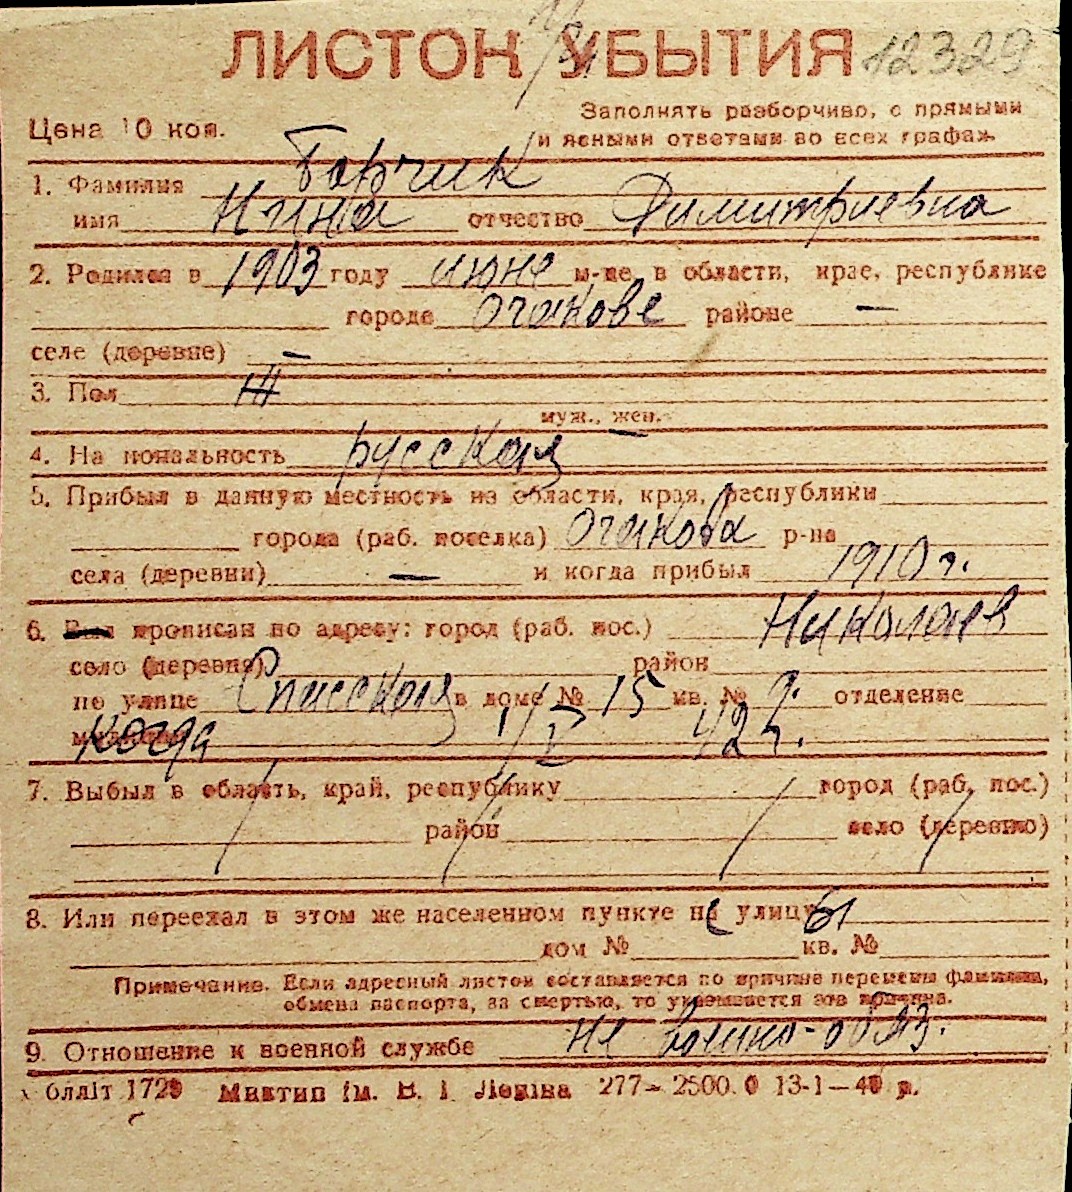 ЛИСТОК УБЫТИЯ 12329
Цена 10 коп.
Заполнять разборчиво, с прямыми
и ясными ответами во всех графах
1. Фамилия Борчик
имя Нина отчество Димитриевна
2. Родился в 1903 году июне м-це, в области, крае, республике
городе Очакове районе —
селе (деревне) —
3. Пол Ж
муж., жен.
4. Национальность русская
5. Прибыл в данную местность из области, края, республики
города (раб. поселка) Очакова р-на
села (деревни) — и когда прибыл 1910 г.
6. Был прописан по адресу: город (раб. пос.) Николаев
село (деревня) район
по улице Спасская в доме № 15 кв. № 9. отделение
когда 1/V 42 г.
7. Выбыл в область, край, республику город (раб. пос.)
район село (деревню)
8. Или переехал в этом же населенном пункте на улицу
дом № кв. №
Примечание. Если адресный листок составляется по причине перемены фамилии,
обмена паспорта, за смертью, то указывается эта причина.
9. Отношение к военной службе не военно-обяз.
облліт 1729 Миктип ім. В. І. Леніна 277— 2500.0 13-1—40 р.